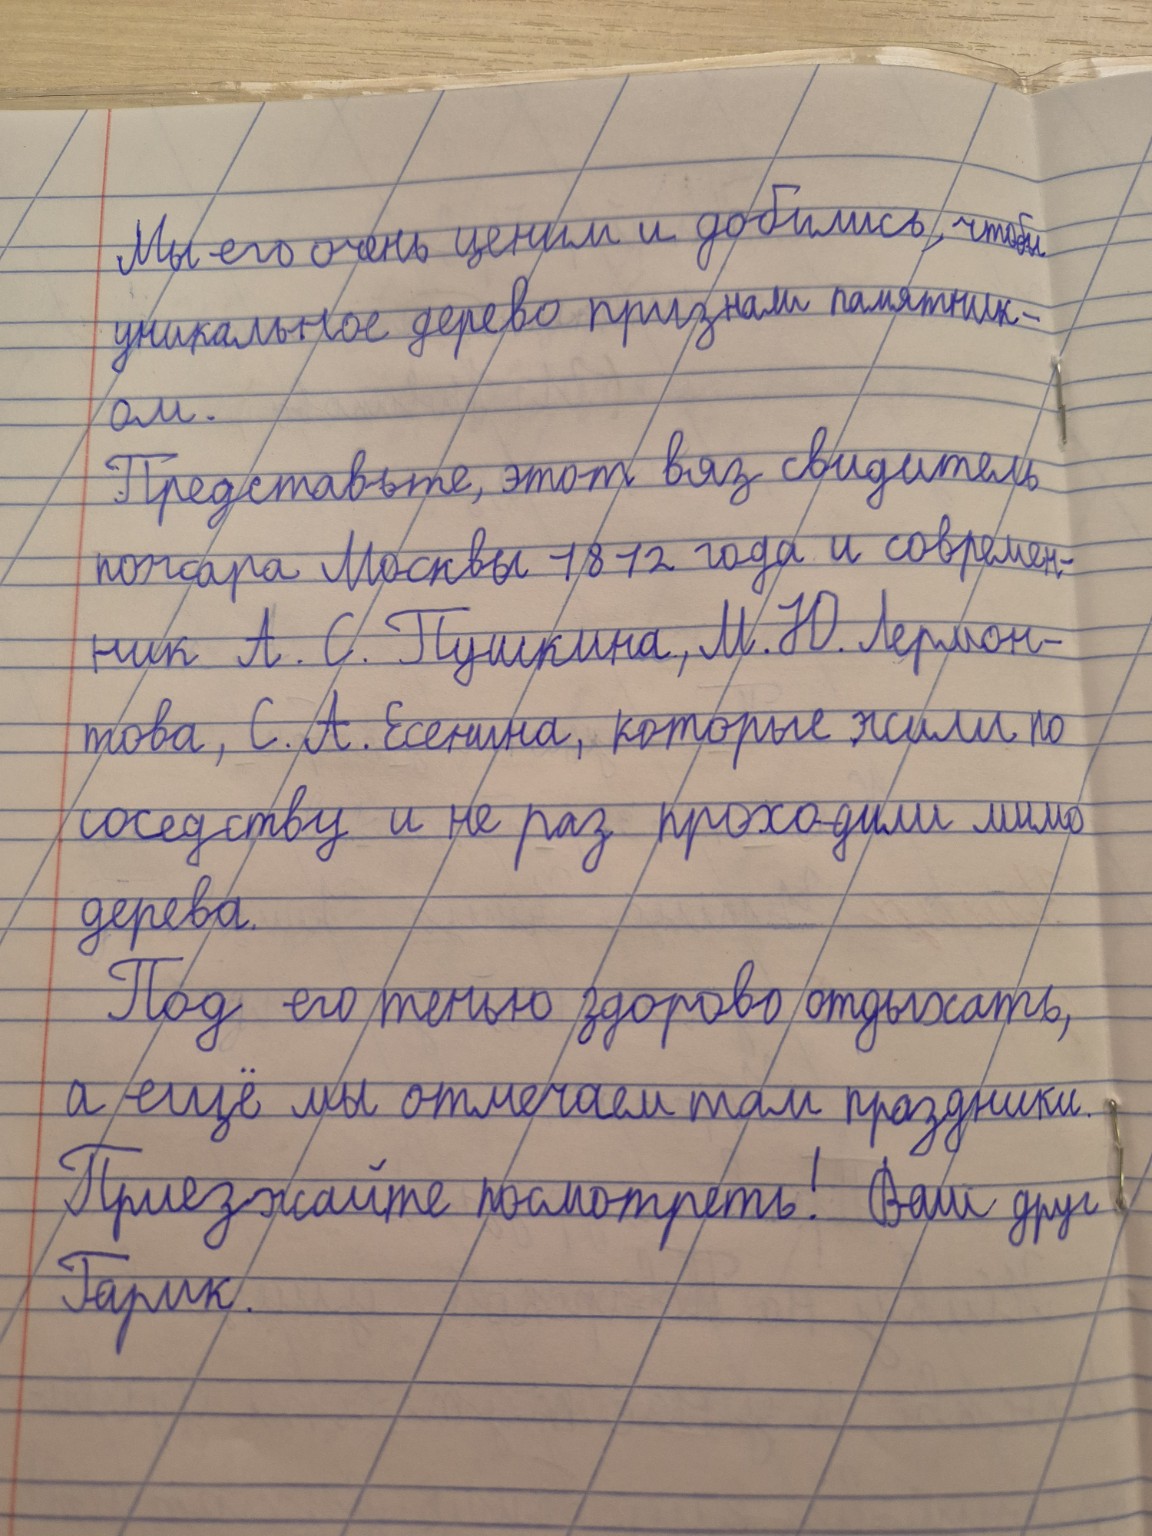 Мы его очень ценим и добились, чтобы
уникальное дерево признали памятник-
ом.
Представьте, этот вяз свидитель
пожара Москвы 1812 года и современ-
ник А. С. Пушкина, М. Ю. Лермон-
това, С. А. Есенина, которые жили по
соседству и не раз проходили мимо
дерева.
Под его тенью здорово отдыхать,
а ещё мы отмечаем там праздники.
Приезжайте посмотреть! Ваш друг
Гарик.